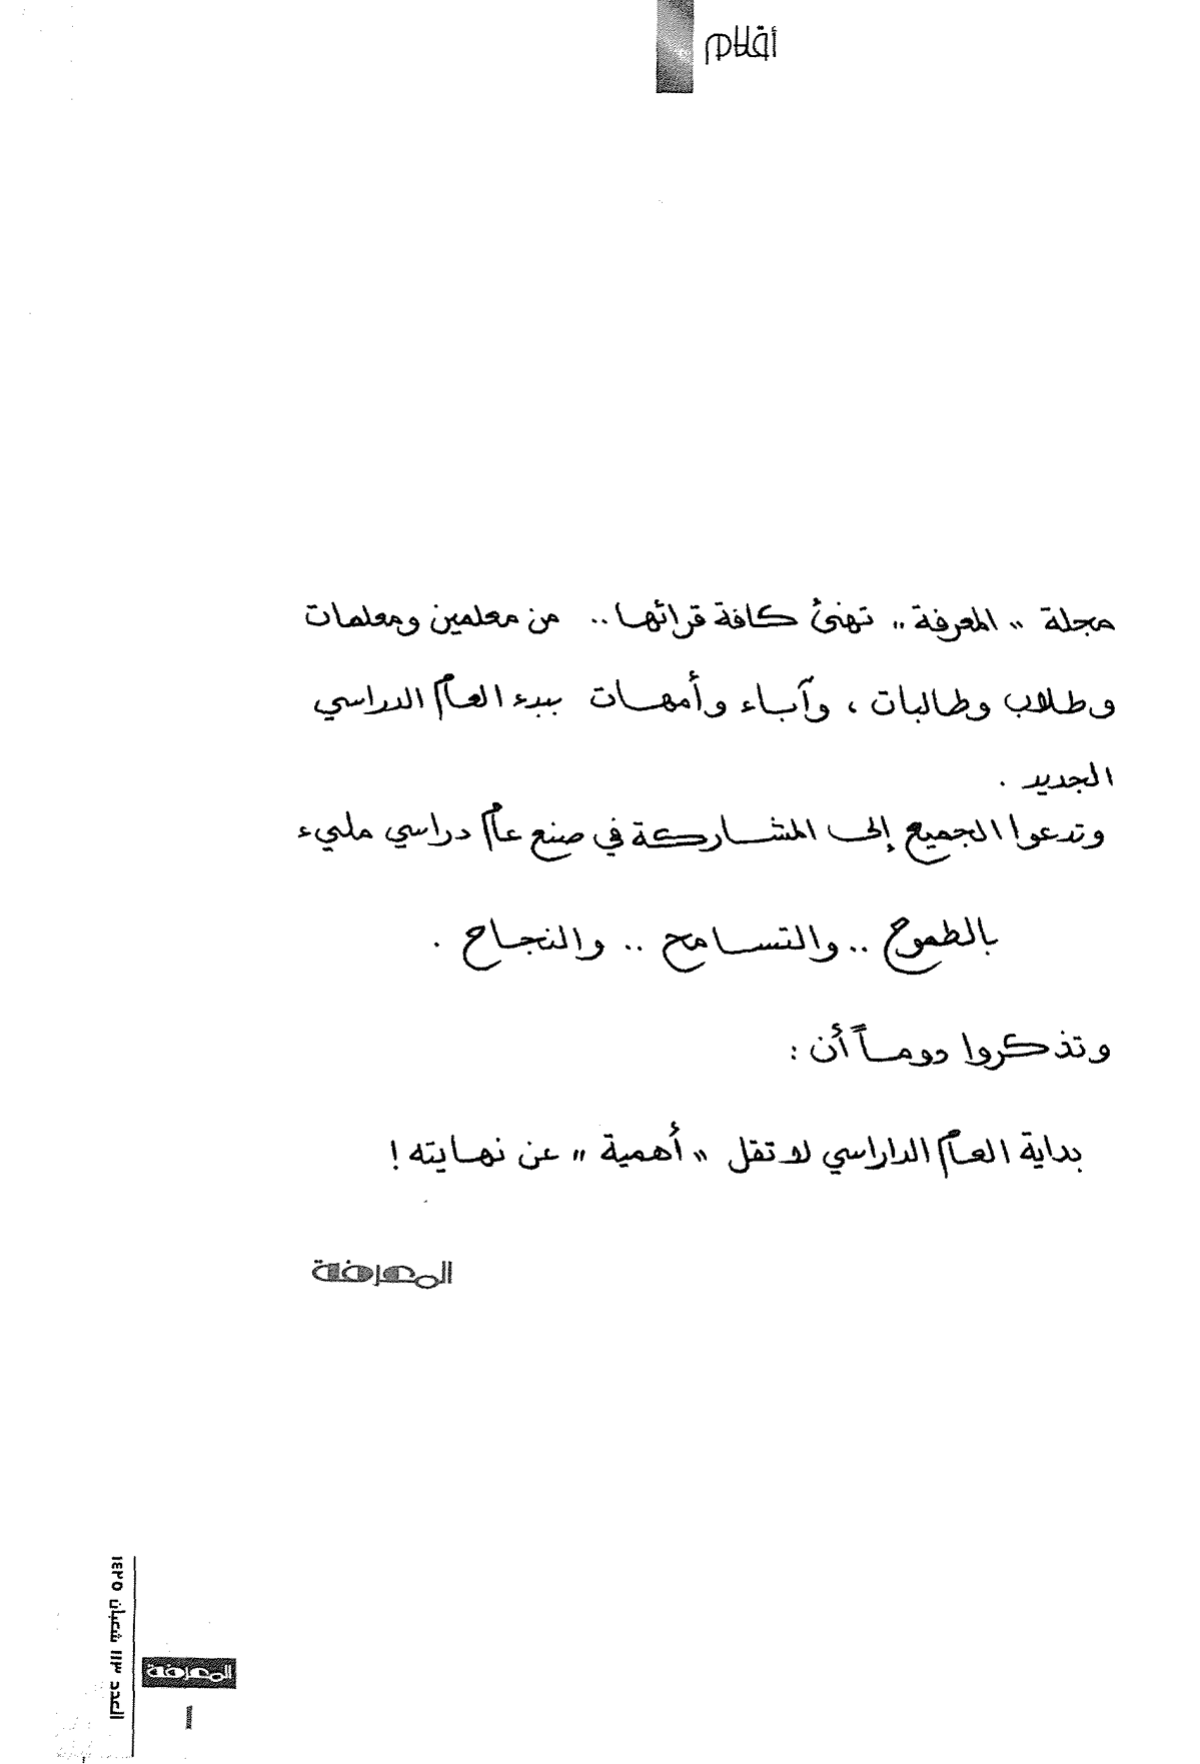 أقلام
مجلة "المعرفة" تهنئ كافة قرائها.. من معلمين ومعلمات
وطلاب وطالبات، وآباء وأمهات ببدء العام الدراسي
الجديد.
وتدعوا الجميع إلى المشاركة في صنع عام دراسي مليء
بالطموح.. والتسامح.. والنجاح.
وتذكروا دوماً أن:
بداية العام الداراسي لا تقل "أهمية" عن نهايته!
المعرفة
العدد ١١٣ شعبان ١٤٢٥
المعرفة
١